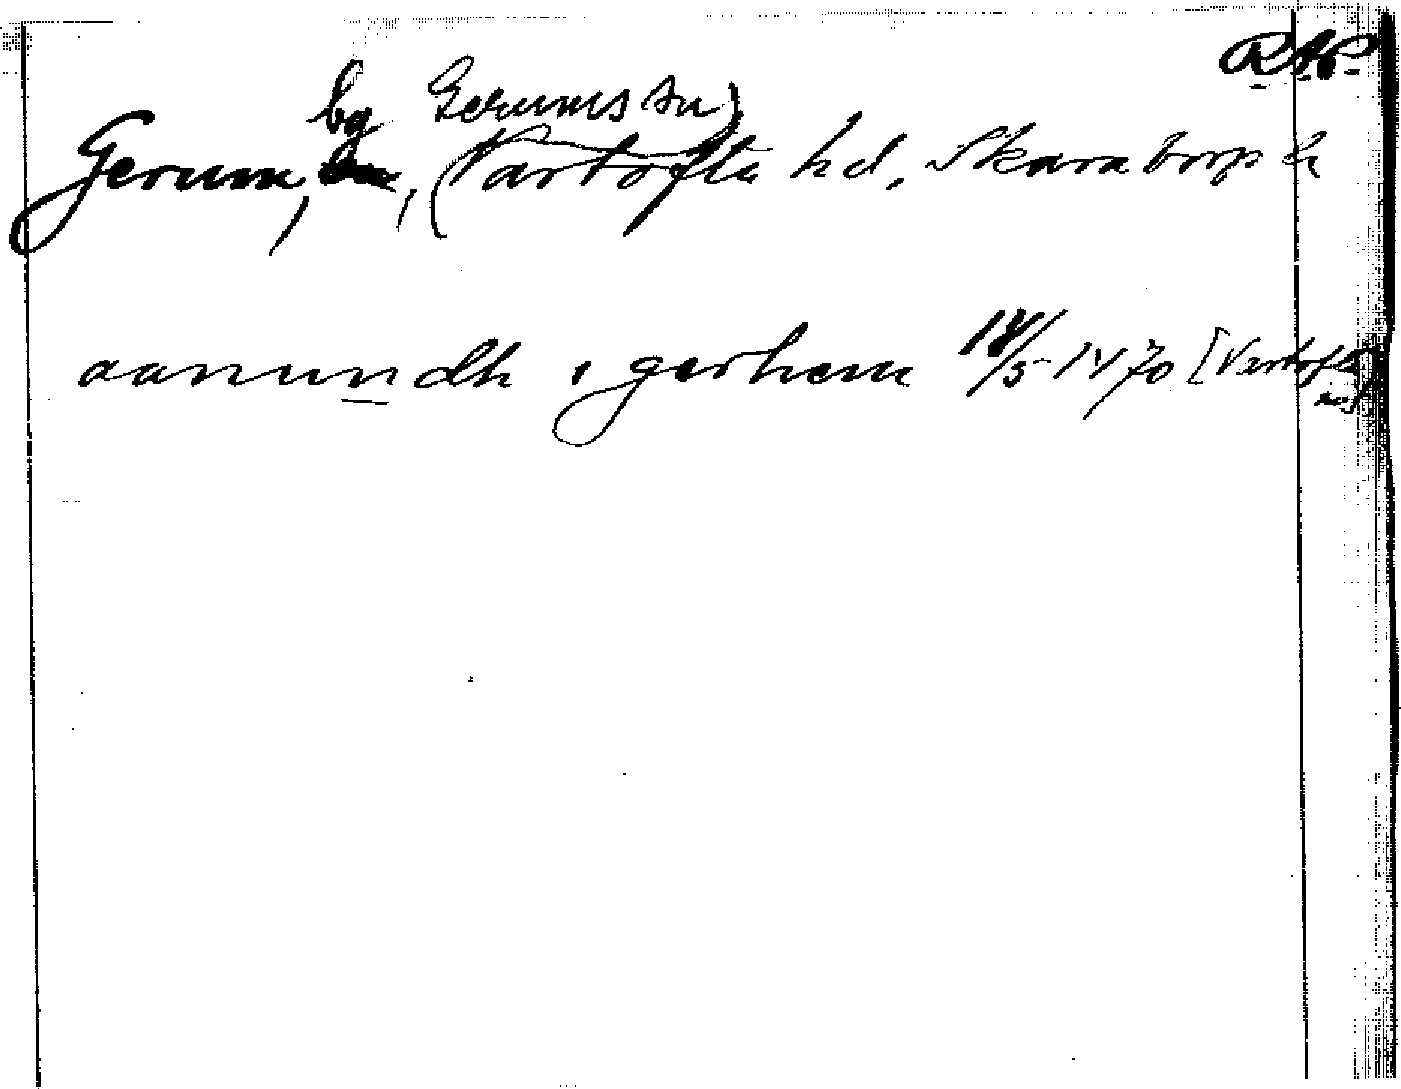 RAP.
bg Gerums sn)
Gerum, (Vartofta hd, Skaraborgs l
aanundh i gerhem 18/5 1470 [Vartofta
hd]